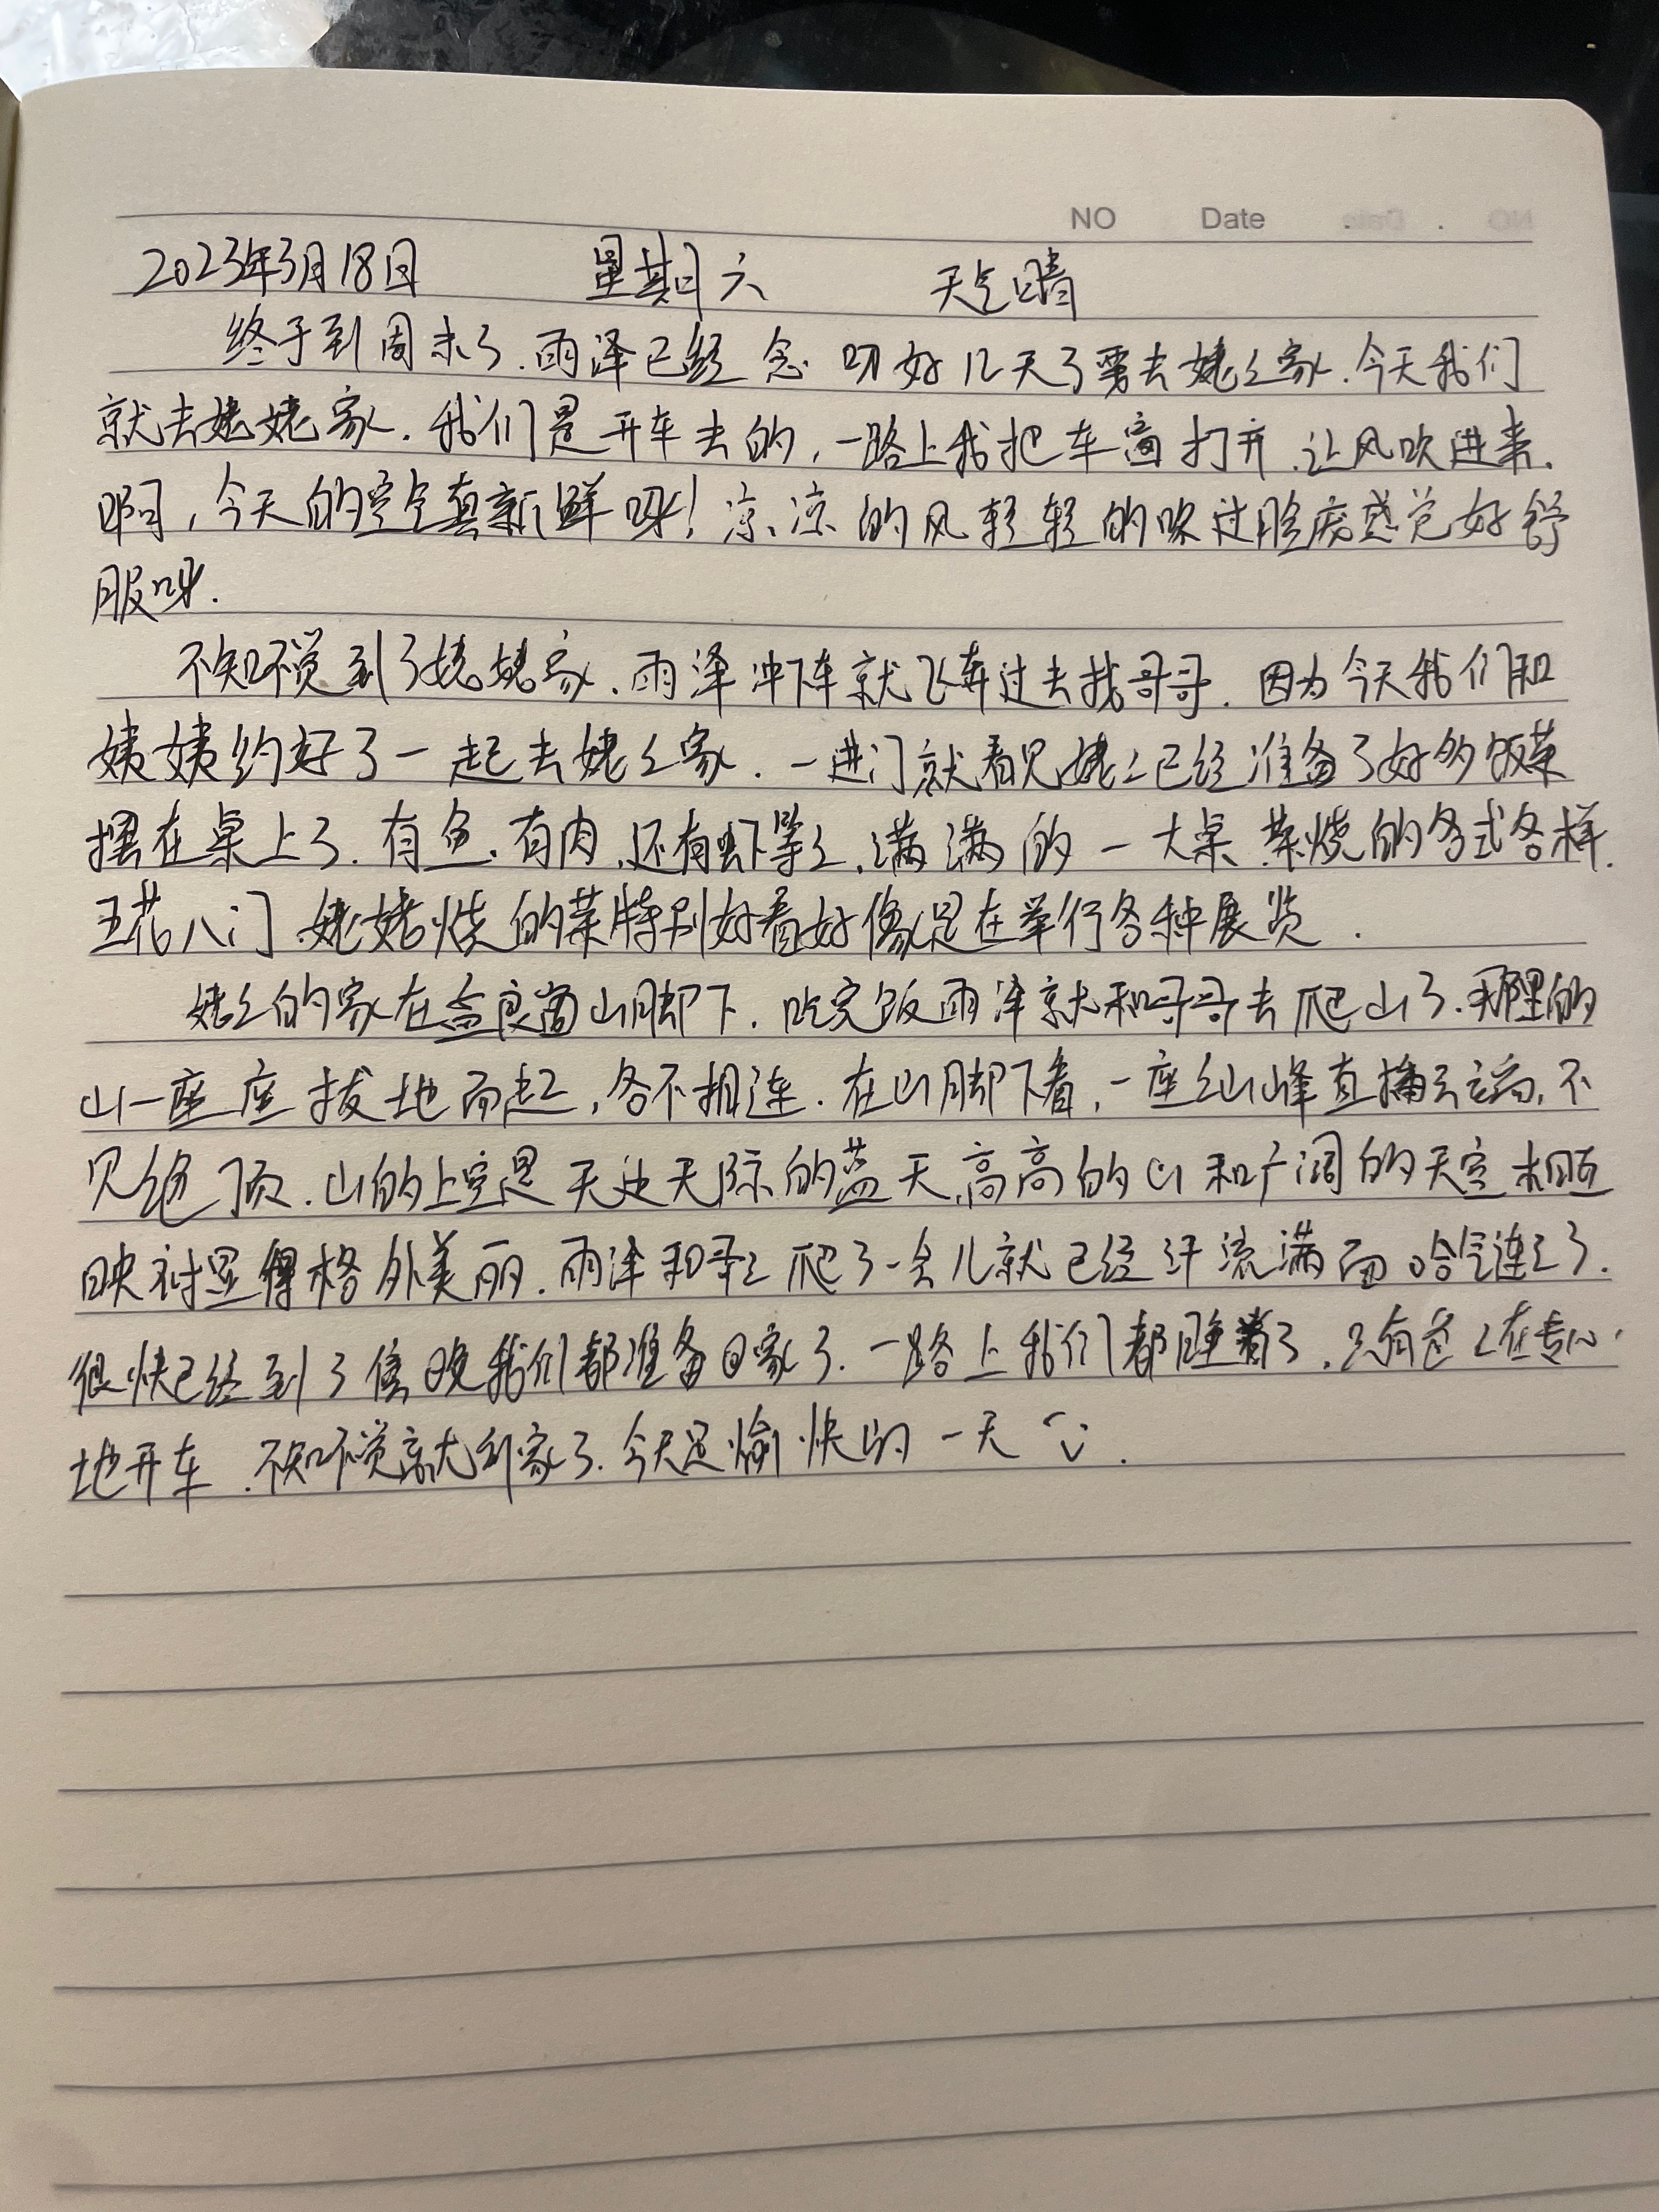 NO Date
2023年3月18日 星期六 天气晴
终于到周末了.雨泽已经念叨好几天了要去姥々家.今天我们
就去姥姥家.我们是开车去的,一路上我把车窗打开.让风吹进来.
啊,今天的空气真新鲜呀!凉凉的风轻轻的吹过脸庞感觉好舒
服呀.
不知不觉到了姥姥家.雨泽冲下车就飞奔过去找哥哥.因为今天我们和
姨姨约好了一起去姥々家.一进门就看见姥々已经准备了好多饭菜
摆在桌上了.有鱼.有肉.还有虾等々.满满的一大桌菜烧的各式各样.
五花八门.姥姥烧的菜特别好看好像是在举行各种展览.
姥々的家在山脚下.吃完饭雨泽就和哥哥去爬山了.那里的
山一座座拔地而起,各不相连.在山脚下看,一座々山峰直插云端,不
见绝顶.山的上空是无边无际的蓝天,高高的山和广阔的天空相互
映衬显得格外美丽.雨泽和哥々爬了一会儿就已经汗流满面哈气连々了.
很快已经到了傍晚我们都准备回家了.一路上我们都睡着了.只有爸々在专心
地开车.不知不觉就到家了.今天是愉快的一天.